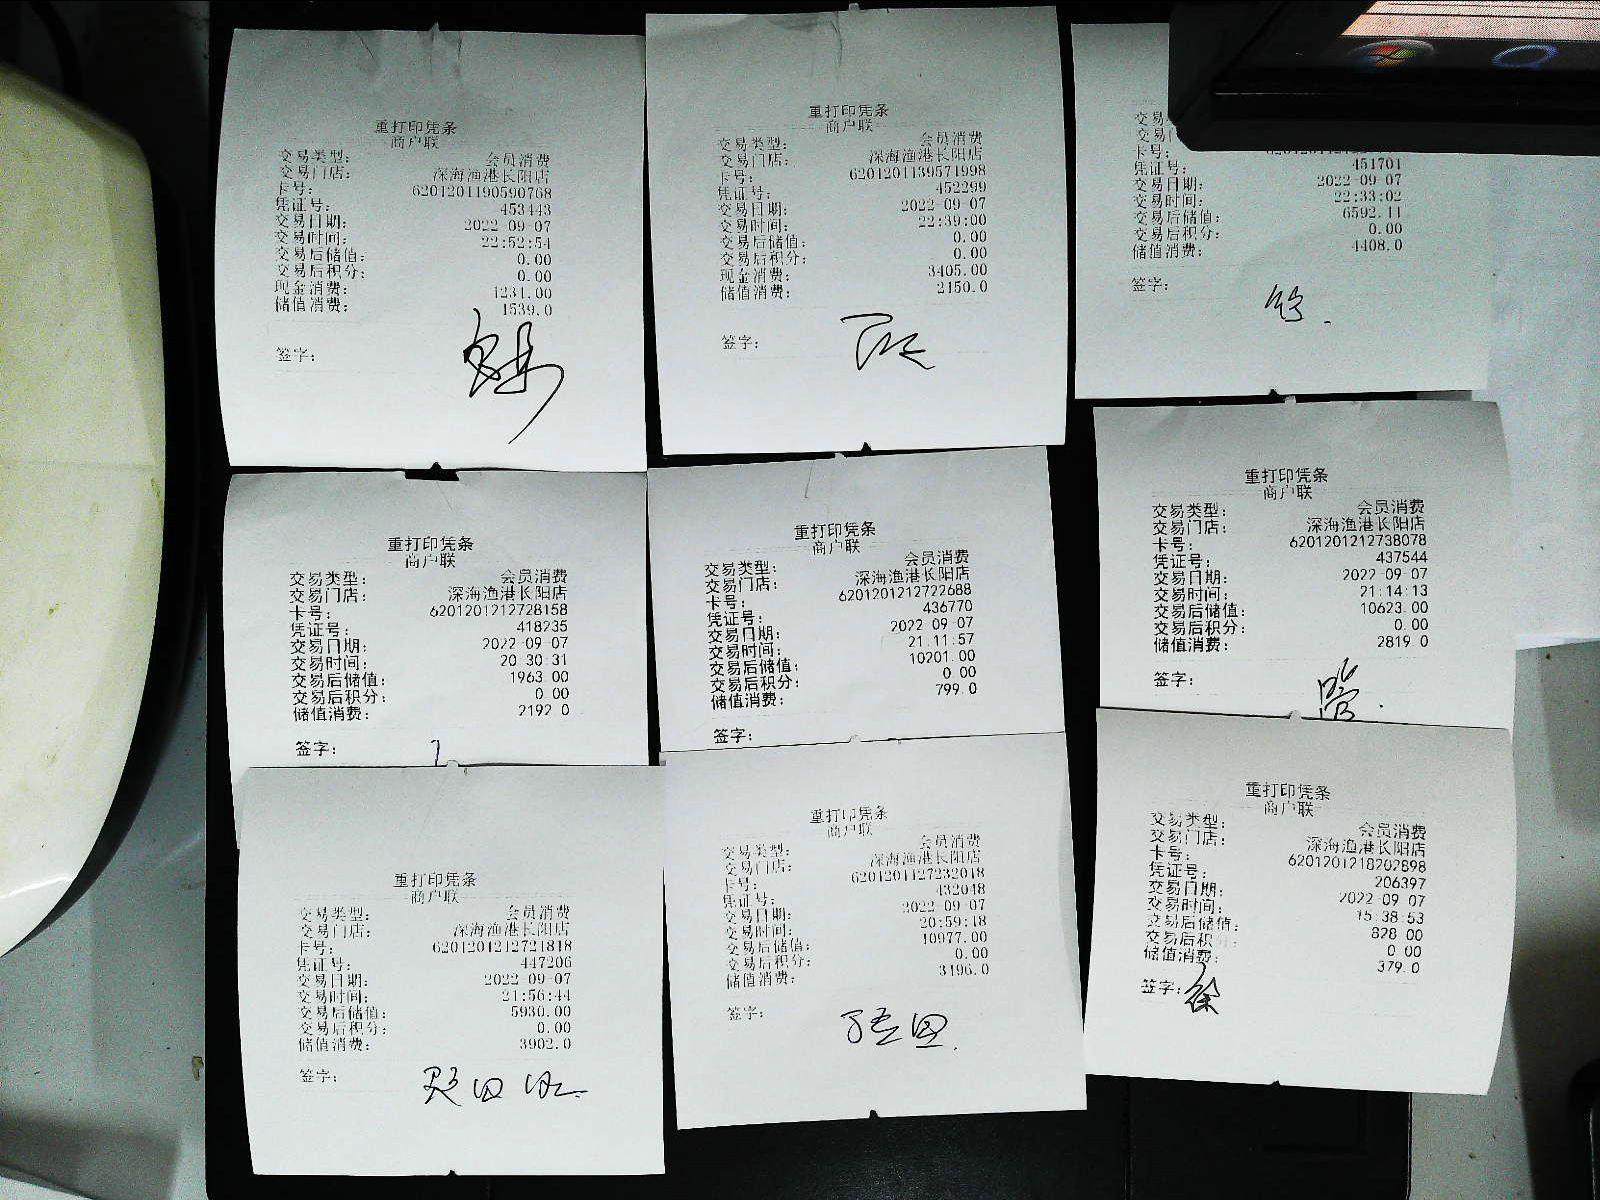 重打印凭条
商户联
交易类型： 会员消费
交易门店： 深海渔港长阳店
卡号： 6201201190590768
凭证号： 453443
交易日期： 2022-09-07
交易时间： 22:52:54
交易后储值： 0.00
交易后积分： 0.00
现金消费： 1231.00
储值消费： 1539.0
签字：
重打印凭条
商户联
交易类型： 会员消费
交易门店： 深海渔港长阳店
卡号： 6201201139571998
凭证号： 452299
交易日期： 2022-09-07
交易时间： 22:39:00
交易后储值： 0.00
交易后积分： 0.00
现金消费： 3405.00
储值消费： 2150.0
签字：
交易
交易
卡号：
凭证号： 451701
交易日期： 2022-09-07
交易时间： 22:33:02
交易后储值： 6592.11
交易后积分： 0.00
储值消费： 4408.0
签字：
重打印凭条
商户联
交易类型： 会员消费
交易门店： 深海渔港长阳店
卡号： 6201201212728158
凭证号： 418235
交易日期： 2022-09-07
交易时间： 20:30:31
交易后储值： 1963.00
交易后积分： 0.00
储值消费： 2192.0
签字：
重打印凭条
商户联
交易类型： 会员消费
交易门店： 深海渔港长阳店
卡号： 6201201212722688
凭证号： 436770
交易日期： 2022-09-07
交易时间： 21:11:57
交易后储值： 10201.00
交易后积分： 0.00
储值消费： 799.0
签字：
重打印凭条
商户联
交易类型： 会员消费
交易门店： 深海渔港长阳店
卡号： 6201201212738078
凭证号： 437544
交易日期： 2022-09-07
交易时间： 21:14:13
交易后储值： 10623.00
交易后积分： 0.00
储值消费： 2819.0
签字：
重打印凭条
商户联
交易类型： 会员消费
交易门店： 深海渔港长阳店
卡号： 6201201212721818
凭证号： 447206
交易日期： 2022-09-07
交易时间： 21:56:44
交易后储值： 5930.00
交易后积分： 0.00
储值消费： 3902.0
签字：
重打印凭条
商户联
交易类型： 会员消费
交易门店： 深海渔港长阳店
卡号： 6201201127232048
凭证号： 432048
交易日期： 2022-09-07
交易时间： 20:59:48
交易后储值： 10977.00
交易后积分： 0.00
储值消费： 3496.0
签字：
重打印凭条
商户联
交易类型： 会员消费
交易门店： 深海渔港长阳店
卡号： 6201201218202898
凭证号： 206397
交易日期： 2022-09-07
交易时间： 15:38:53
交易后储值： 828.00
交易后积分： 0.00
储值消费： 379.0
签字： 徐